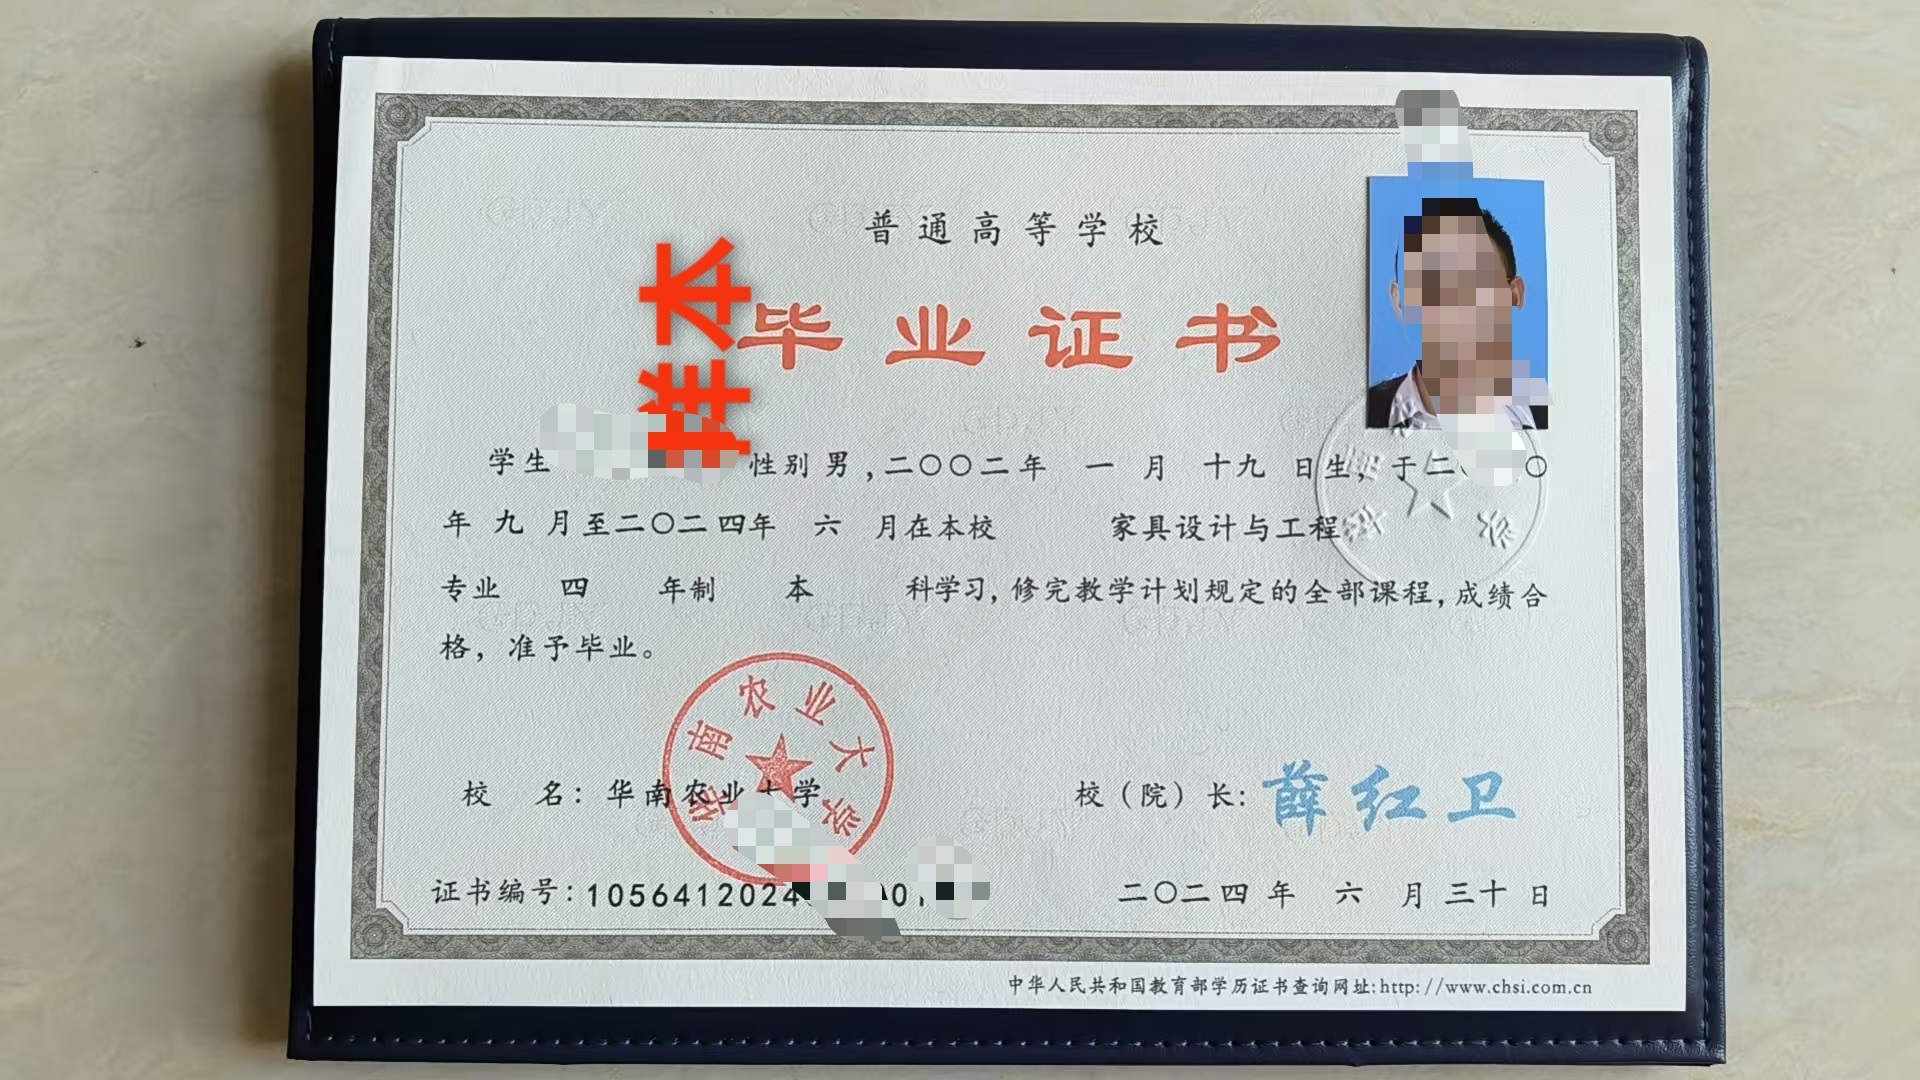 普通高等学校
样本
毕业证书
学生 性别 男，二〇〇二年 一 月 十九 日生，于二 〇
年 九 月至二〇二四年 六 月在本校 家具设计与工程
专业 四 年制 本 科学习，修完教学计划规定的全部课程，成绩合
格，准予毕业。
华南农业大学
校 名：华南农业大学
校（院）长：薛红卫
证书编号：1056412024
二〇二四 年 六 月 三十 日
中华人民共和国教育部学历证书查询网址：http://www.chsi.com.cn